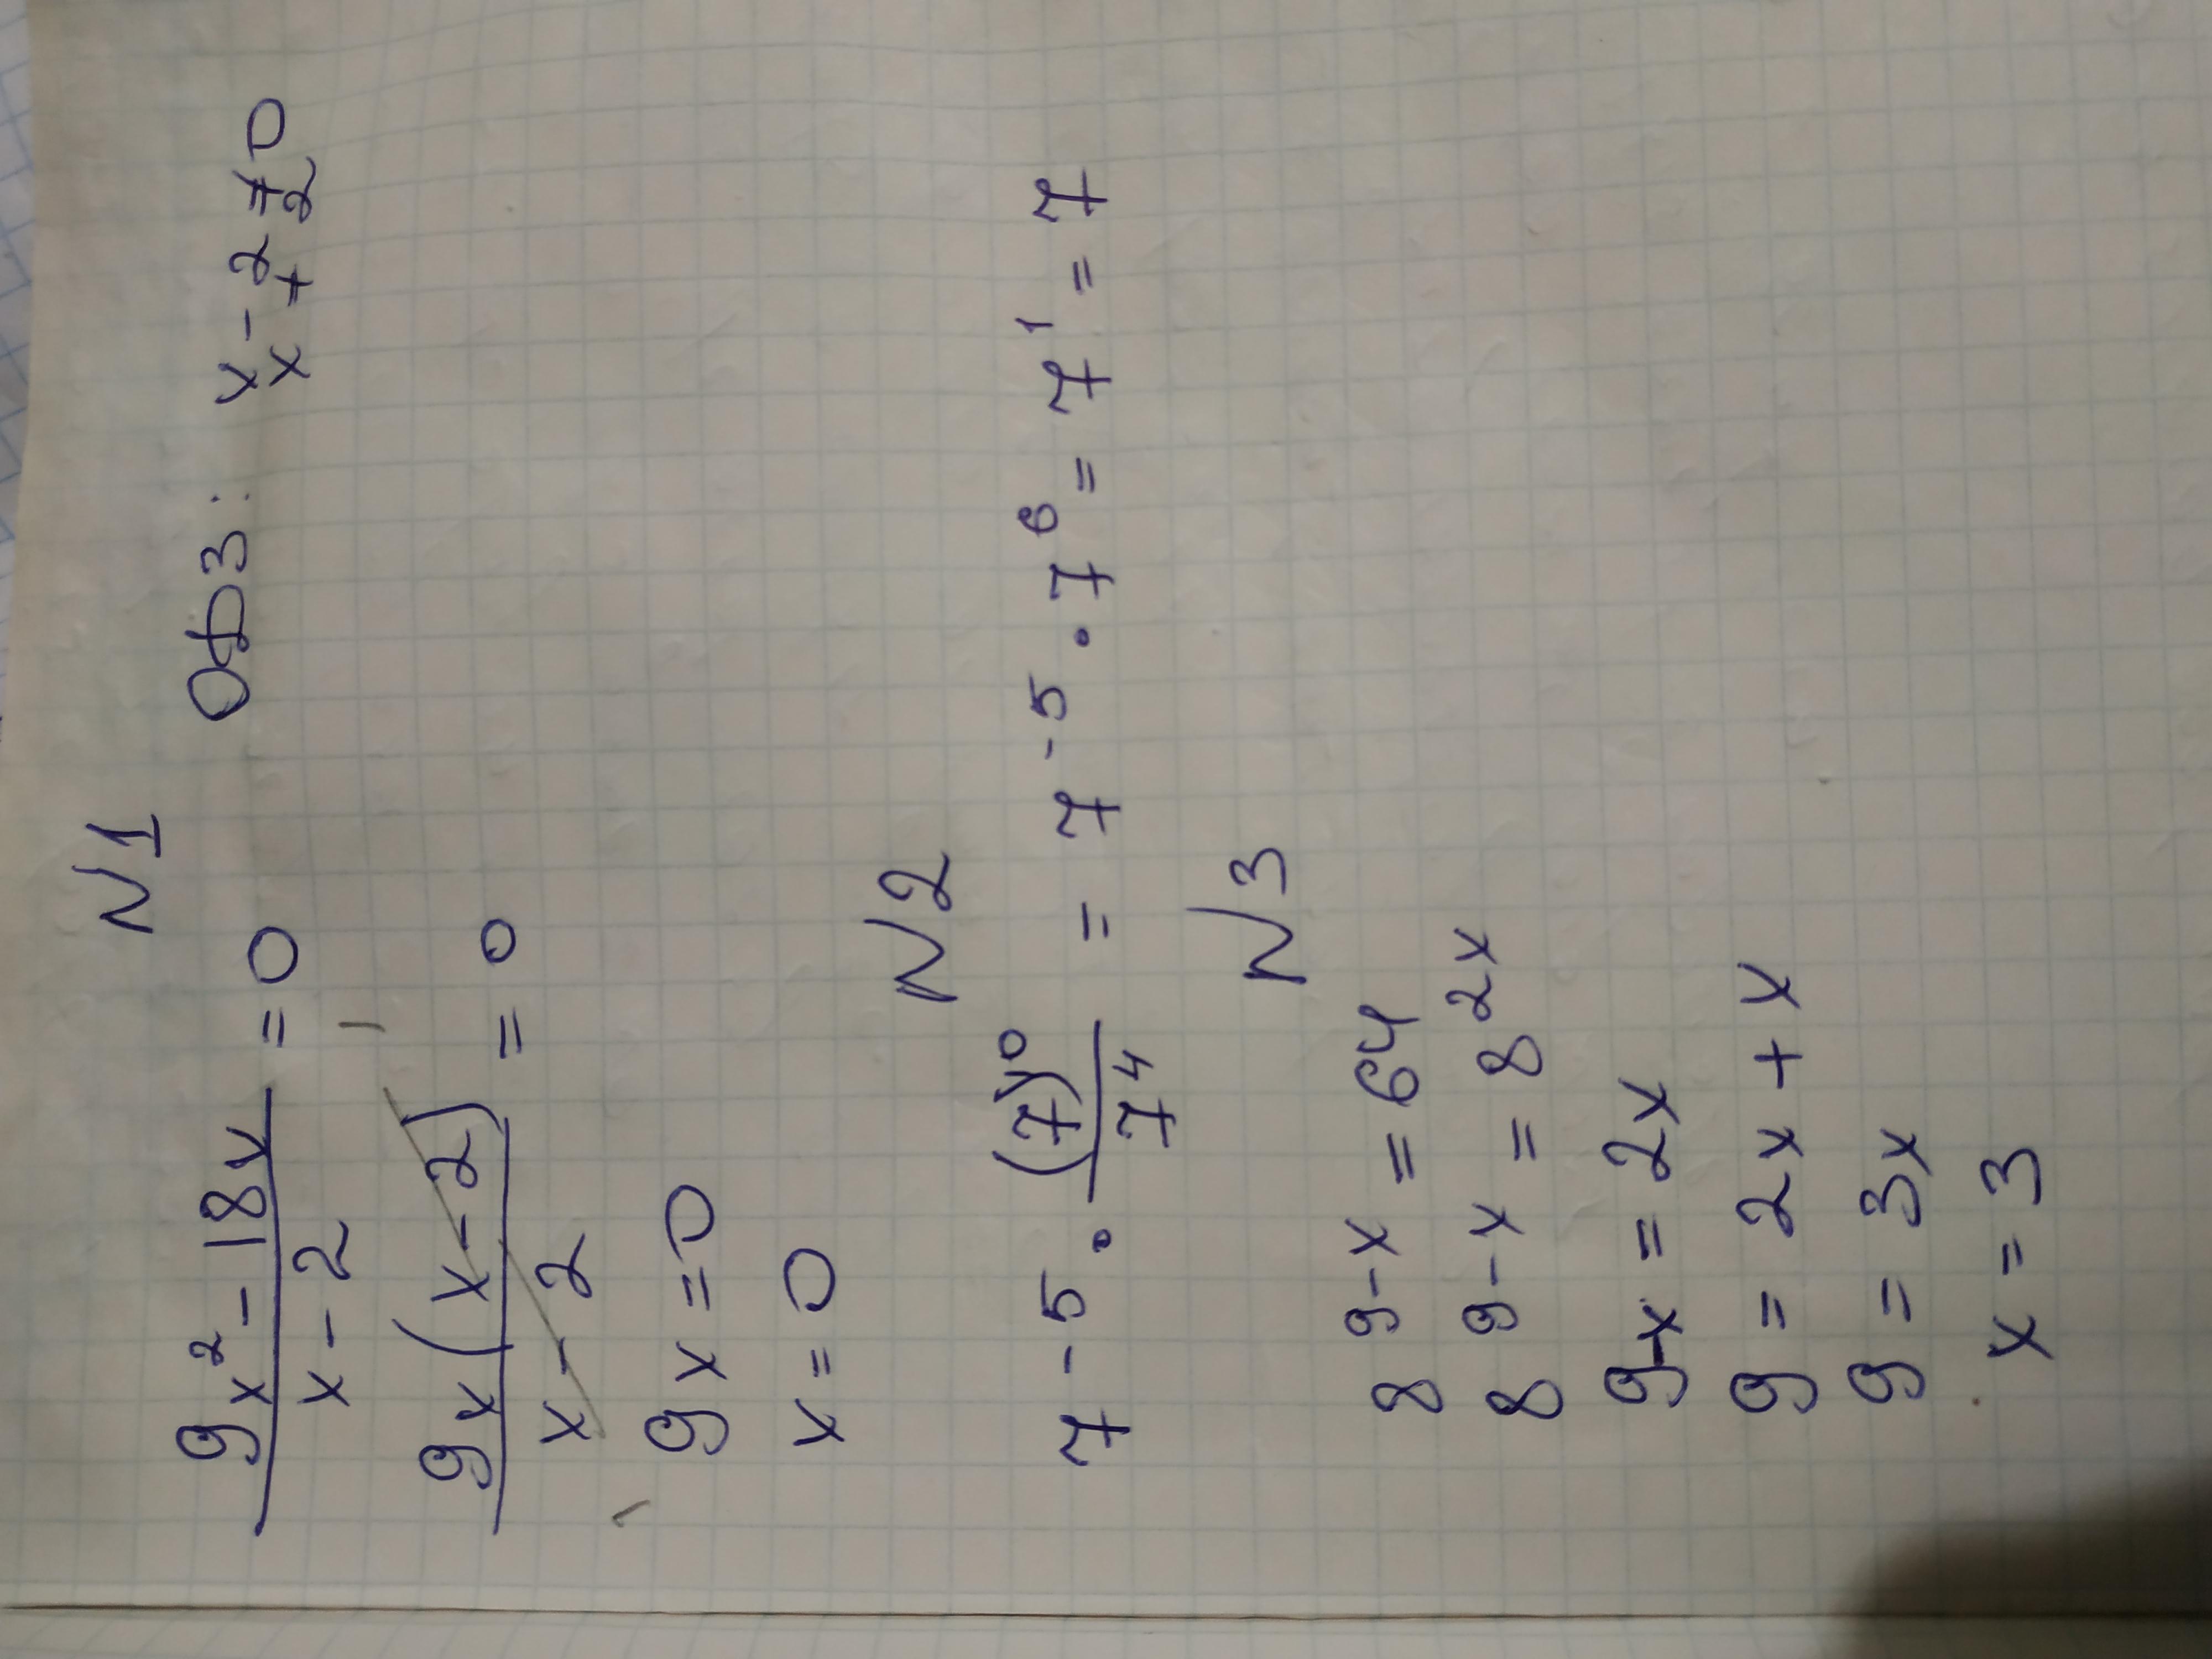 N1
9x² - 18x / x - 2 = 0 ОДЗ: x - 2 ≠ 0
x ≠ 2
9x(x - 2) / x - 2 = 0
9x = 0
x = 0
N2
7⁻⁵ · (7)¹⁰ / 7⁴ = 7⁻⁵ · 7⁶ = 7¹ = 7
N3
8⁹⁻ˣ = 64
8⁹⁻ˣ = 8²ˣ
9-x = 2x
9 = 2x + x
9 = 3x
x = 3